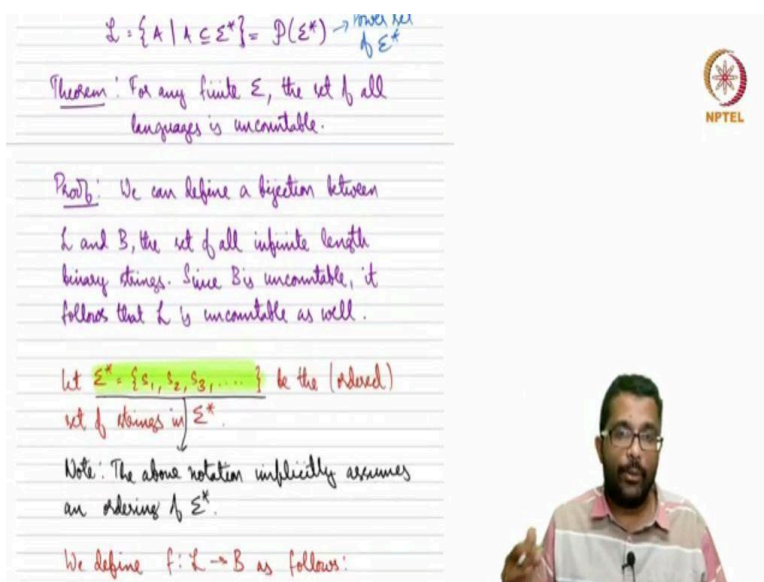 L = {A | A ⊆ Σ*} = P(Σ*) → Power set
of Σ*
Theorem: For any finite Σ, the set of all
languages is uncountable.
NPTEL
Proof: We can define a bijection between
L and B, the set of all infinite length
binary strings. Since B is uncountable, it
follows that L is uncountable as well.
Let Σ* = {s₁, s₂, s₃, ....} be the (ordered)
set of strings in Σ*.
Note: The above notation implicitly assumes
an ordering of Σ*.
We define f: L → B as follows: